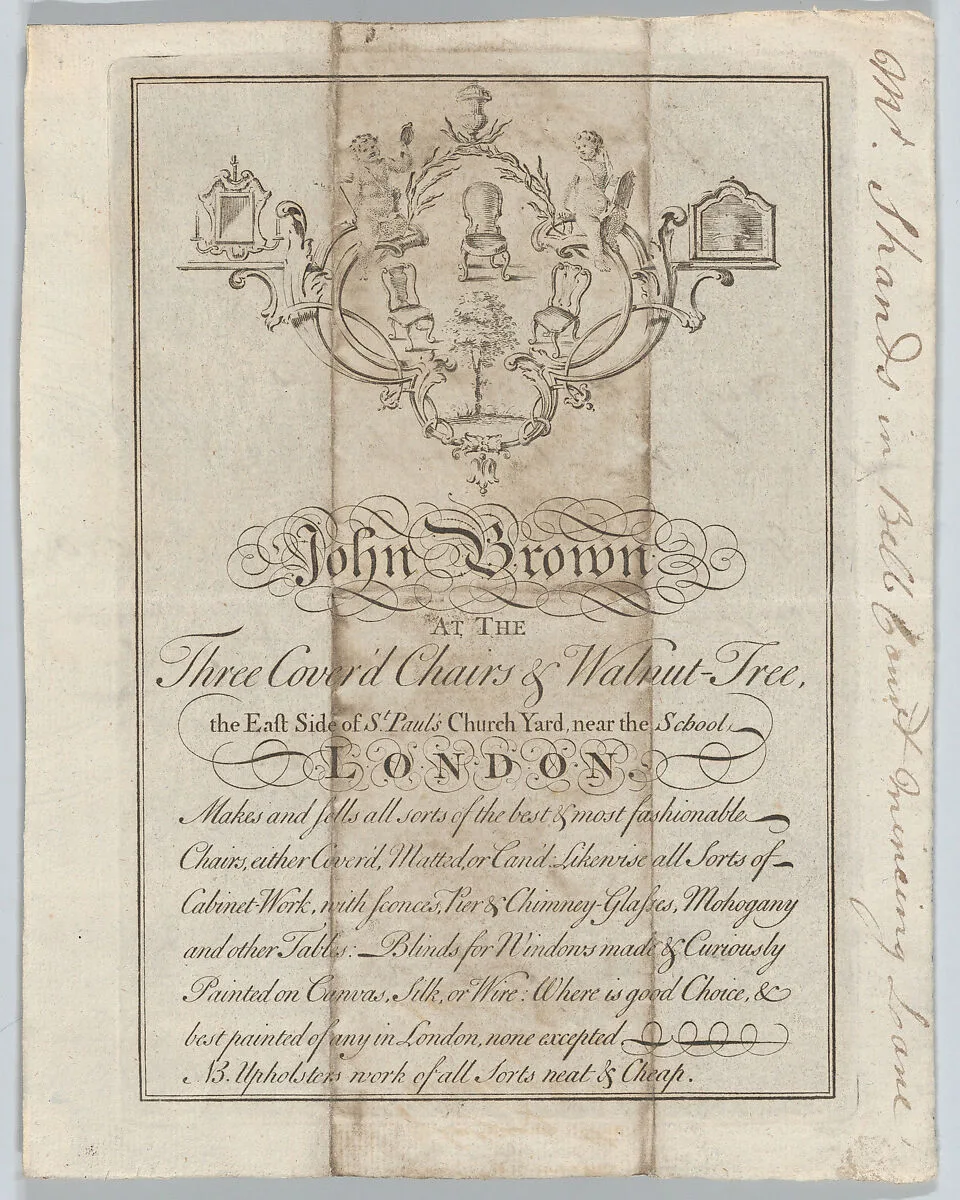 John Brown
AT THE
Three Cover'd Chairs & Walnut-Tree,
the Eaſt Side of St. Paul's Church Yard, near the School,
LONDON.
Makes and ſells all sorts of the best & most fashionable
Chairs, either Cover'd, Matted, or Can'd: Likewise all Sorts of
Cabinet-Work, with ſconces, Pier & Chimney-Glaſses, Mohogany
and other Tables: Blinds for Windows made & Curiously
Painted on Canvas, Silk, or Wire: Where is good Choice, &
best painted of any in London, none excepted
NB. Upholsters work of all Sorts neat & Cheap.
Mr. Shands in Bell Court Mincing Lane